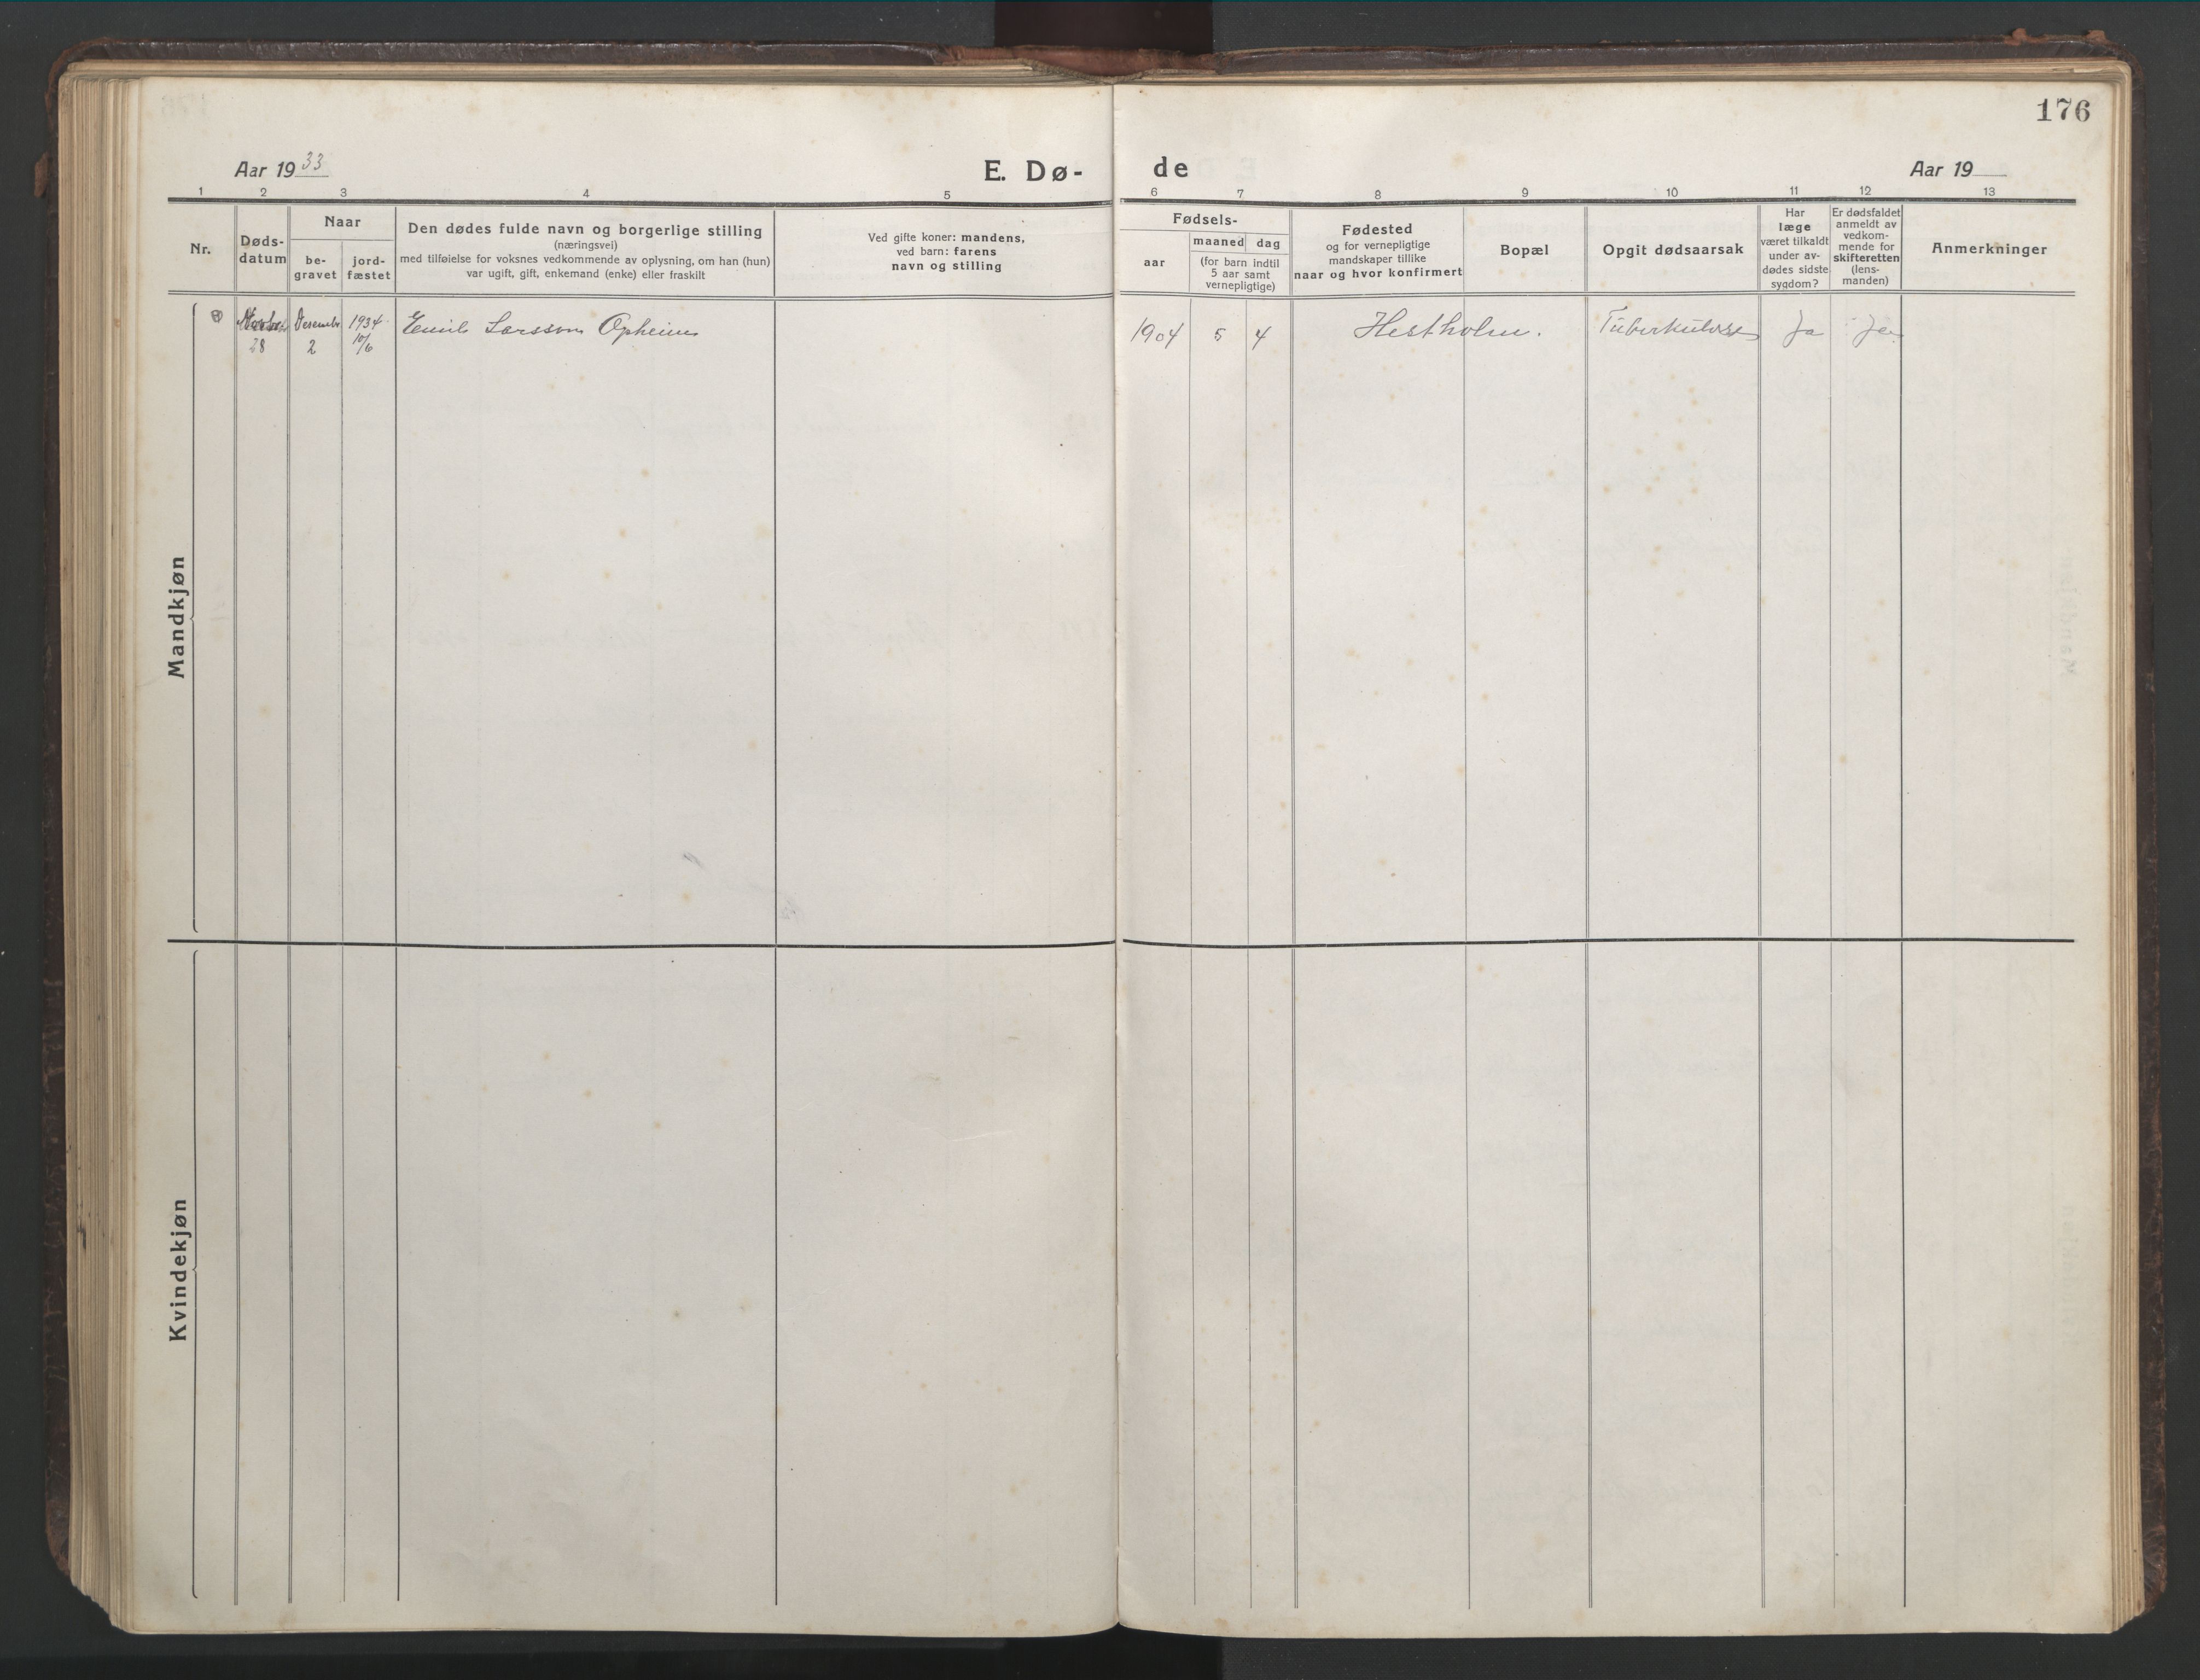 176
Aar 1933
E. Dø-
de
Aar 19
1 2 3 4 5 6 7 8 9 10 11 12 13
Nr.
Døds-
datum
Naar
be-
gravet
jord-
fæstet
Den dødes fulde navn og borgerlige stilling
(næringsvei)
med tilføielse for voksnes vedkommende av oplysning, om han (hun)
var ugift, gift, enkemand (enke) eller fraskilt
Ved gifte koner: mandens,
ved barn: farens
navn og stilling
Fødsels-
aar
maaned dag
(for barn indtil
5 aar samt
vernepligtige)
Fødested
og for vernepligtige
mandskaper tillike
naar og hvor konfirmert
Bopæl
Opgit dødsaarsak
Har
læge
været tilkaldt
under av-
dødes sidste
sygdom?
Er dødsfaldet
anmeldt av
vedkom-
mende for
skifteretten
(lens-
manden)
Anmerkninger
Mandkjøn
8
28
Desembr
2
1934
10/6
Emil Larsson Opheim
1904 5 4
Hestholm.
Tuberkulose
Ja
Ja
Kvindekjøn